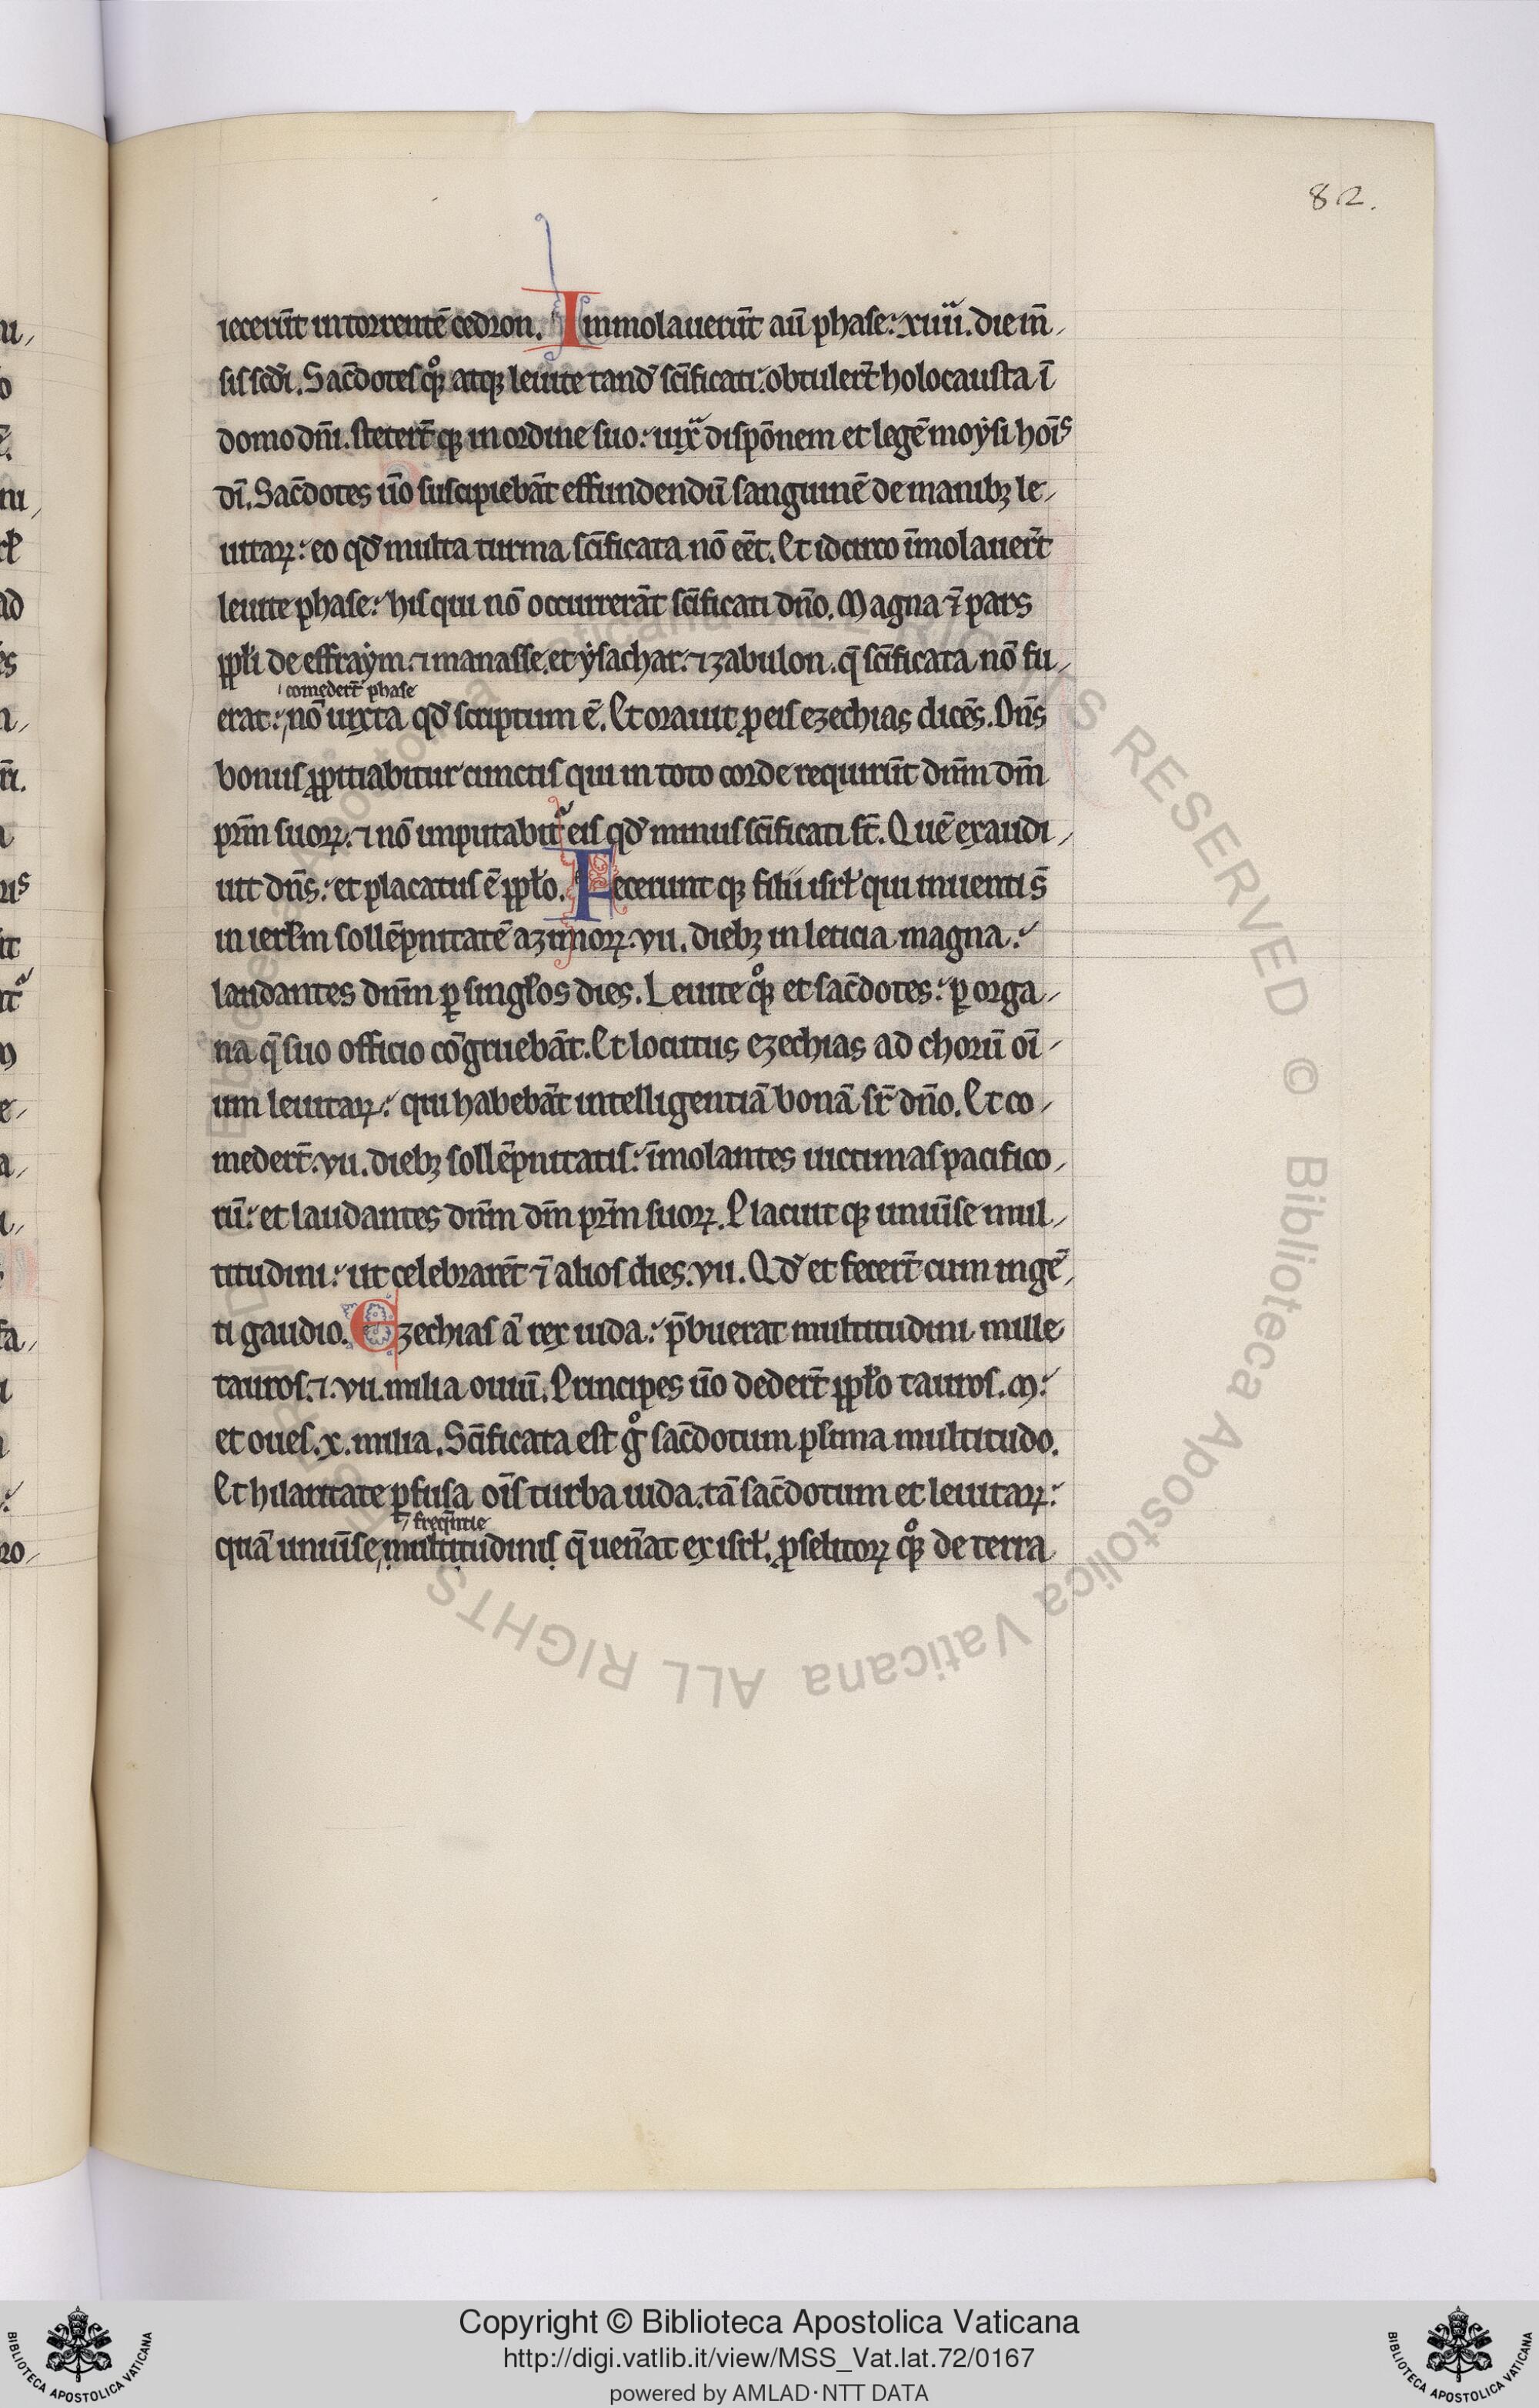 82.
iecerūt in torrentē cedron. Immolauerūt aū phase: xiiii. die m̄
sis scd̄i. Sac̄dotes qͦꝫ atqꝫ leuite tand̄ sc̄ificati: obtulert̄ holocausta ī
domo dn̄i. stetert̄qꝫ in ordine suo: iuxͣ dispōnem et legē moẏsi hoīs
dī. Sac̄dotes ūo suscipiebāt effundendū sanguinē de manibꝫ le
uitaꝝ: eo qd̄ multa turma sc̄ificata nō eēt. Et idcirco īmolauert̄
leuite phase: his qui nō occurrerāt sc̄ificati dn̄o. Magna ⁊̄ pars
ppl̄i de effraẏm. ⁊ manasse. et ẏsachar. ⁊ zabulon. q̄ sc̄ificata nō fu
comedert̄ phase
erat: nō iuxta qd̄ scriptum ē. Et orauit ꝑ eis ezechias dicēs. Dn̄s
bonus ꝓpitiabitur cunctis qui in toto corde requirūt dnm̄ dm̄
prm̄ suoꝝ. ⁊ nō imputabit᷑ eis qd̄ minus sc̄ificati st̄. Quē exaudi
uit dn̄s: et placatus ē ppl̄o. Feceruntqꝫ filii isrl̄ qui inuenti s̄
in ierl̄m sollēpnitatē azimoꝝ. vii. diebꝫ in leticia magna:
laudantes dnm̄ ꝑ singl̄os dies. Leuite qͦꝫ et sac̄dotes: ꝑ orga
na q̄ suo officio cōgruebāt. Et locutus ezechias ad chorū oī
um leuitaꝝ: qui habebāt intelligentiā bonā sr̄ dn̄o. Et co
medert̄. vii. diebꝫ sollēpnitatis: īmolantes uictimas pacifico
rū: et laudantes dnm̄ dm̄ prm̄ suoꝝ. Placuitqꝫ uniūse mul
titudini: ut celebrarēt ⁊̄ alios dies. vii. Qd̄ et fecert̄ cum ingē
ti gaudio. Ezechias ā rex iuda: p̄buerat multitudini mille
tauros. ⁊. vii. milia ouiū. Principes ūo dedert̄ ppl̄o tauros. m:
et oues. x. milia. Sc̄ificata est gͦ sac̄dotum plīma multitudo.
Et hilaritate ꝑfusa oīs turba iuda. tā sac̄dotum et leuitaꝝ:
freqn̄tie
quā uniūse multitudinis q̄ uen̄at ex isrl̄. ꝓselitoꝝ qͦꝫ de terra
Copyright © Biblioteca Apostolica Vaticana
http://digi.vatlib.it/view/MSS_Vat.lat.72/0167
powered by AMLAD·NTT DATA
BIBLIOTECA APOSTOLICA VATICANA
BIBLIOTECA APOSTOLICA VATICANA